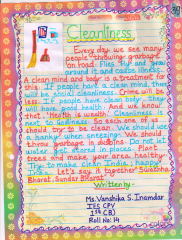 Cleanliness
Every day we see many
people throwing garbage
on road. Flies sit and your
around it and causes illness.
A clean mind and body is a treatment for
this. If people have a clean mind, they
will be social cleanliness. Crime will be
less. If people have clean body, they
will have good health. And we know
that, 'Health is wealth'. Cleanliness is
next to Godliness. So each one of us
should try to be clean. We should use
a hanky when sneezing. We should
throw garbage in dustbins. Do not let
water get stored in places. Plant
trees and make your area healthy.
Try to make clean India, happy
India. Let's say it together 'Swachha
Bharat, Sundar Bharat'.
Written by:
Ms. Vanshika S. Inamdar
IES CPV
1st CB)
Roll No: 14